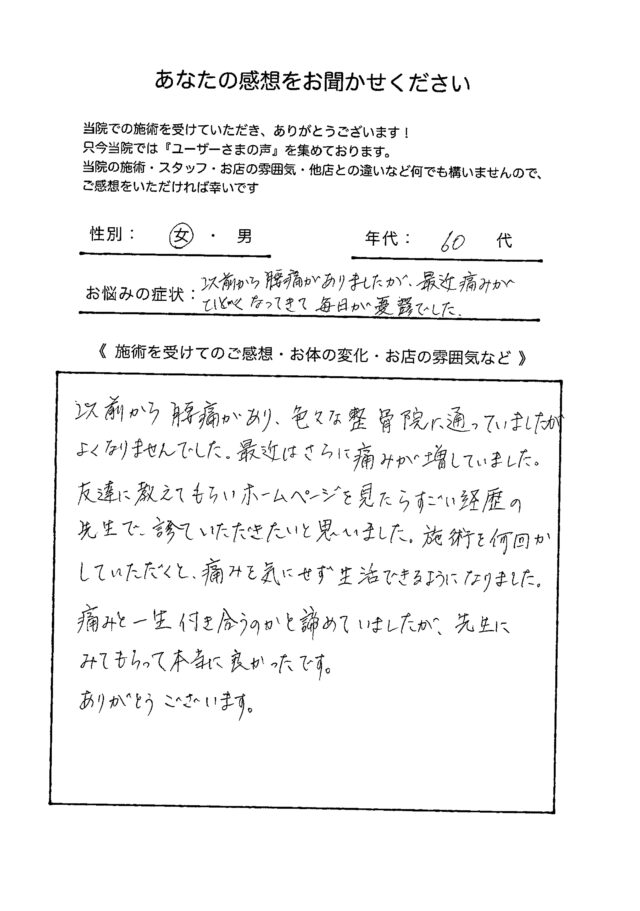 あなたの感想をお聞かせください
当院での施術を受けていただき、ありがとうございます！
只今当院では『ユーザーさまの声』を集めております。
当院の施術・スタッフ・お店の雰囲気・他店との違いなど何でも構いませんので、
ご感想をいただければ幸いです
性別： 女 ・ 男 年代： 60 代
お悩みの症状： 以前から腰痛がありましたが、最近痛みが
ひどくなってきて毎日が憂鬱でした。
《 施術を受けてのご感想・お体の変化・お店の雰囲気など 》
以前から腰痛があり、色々な整骨院に通っていましたが
よくなりませんでした。最近はさらに痛みが増していました。
友達に教えてもらいホームページを見たらすごい経歴の
先生で、診ていただきたいと思いました。施術を何回か
していただくと、痛みを気にせず生活できるようになりました。
痛みと一生付き合うのかと諦めていましたが、先生に
みてもらって本当に良かったです。
ありがとうございます。